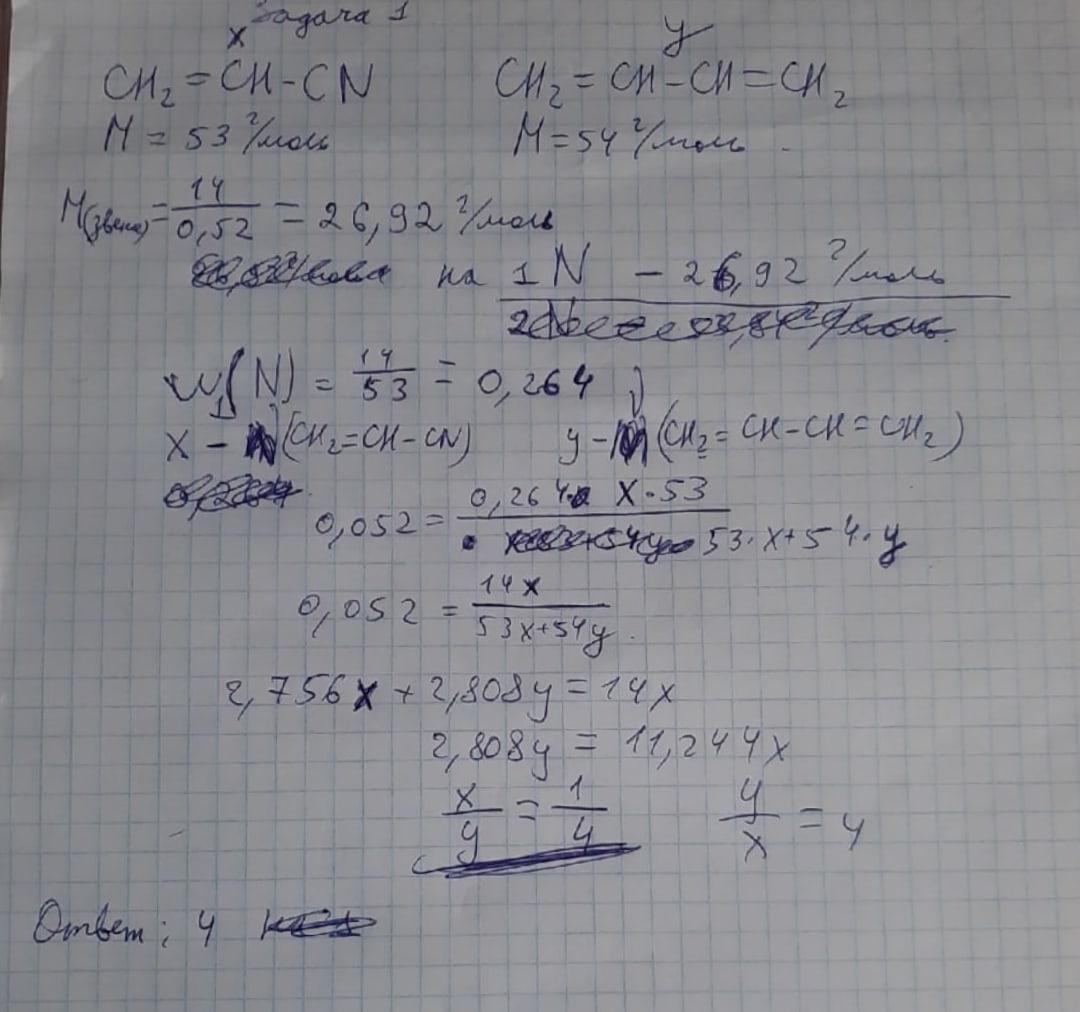 Задача 1
x y
CH₂=CH-CN CH₂=CH-CH=CH₂
M = 53 г/моль M=54 г/моль.
M(звена) = 14/0,52 = 26,92 г/моль
на 1N - 26,92 г/моль
W₁(N) = 14/53 = 0,264
x - (CH₂=CH-CN) y - (CH₂=CH-CH=CH₂)
0,052 = 0,264·x·53/53·x+54·y
0,052 = 14x/53x+54y.
2,756x + 2,808y = 14x
2,808y = 11,244x
x/y = 1/4 y/x = 4
Ответ: 4